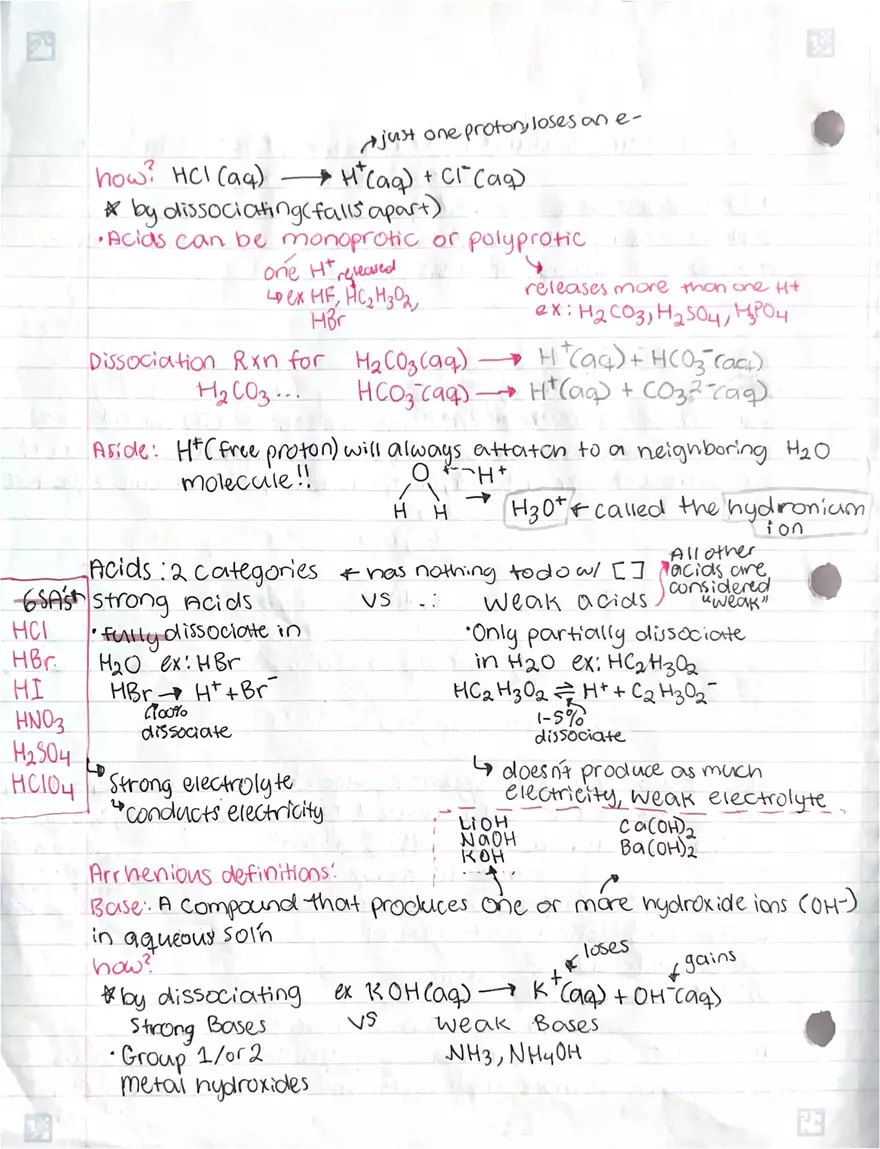 just one proton, loses an e-
how? HCl (aq) → H⁺(aq) + Cl⁻(aq)
* by dissociating (falls apart)
• Acids can be monoprotic or polyprotic
one H⁺ released
↳ ex HF, HC₂H₃O₂,
HBr
releases more than one H+
ex: H₂CO₃, H₂SO₄, H₃PO₄
Dissociation Rxn for H₂CO₃(aq) → H⁺(aq) + HCO₃⁻(aq)
H₂CO₃... HCO₃⁻(aq) → H⁺(aq) + CO₃²⁻(aq)
Aside: H⁺(free proton) will always attatch to a neighboring H₂O
molecule!! O ← H+
H H → H₃O⁺ ← called the hydronium
ion
Acids: 2 categories ← has nothing to do w/ []
All other
acids are
considered
"weak"
6 SA's
HCl
HBr
HI
HNO₃
H₂SO₄
HClO₄
Strong Acids vs weak acids
• fully dissociate in
H₂O ex: HBr
HBr → H⁺ + Br⁻
100%
dissociate
↳ Strong electrolyte
↳ conducts electricity
• Only partially dissociate
in H₂O ex: HC₂H₃O₂
HC₂H₃O₂ ⇌ H⁺ + C₂H₃O₂⁻
1-5%
dissociate
↳ doesn't produce as much
electricity, weak electrolyte
LiOH Ca(OH)₂
NaOH Ba(OH)₂
KOH
.....
Arrhenious definitions:
Base: A compound that produces one or more hydroxide ions (OH⁻)
in aqueous sol'n
how?
loses
gains
* by dissociating ex KOH(aq) → K⁺(aq) + OH⁻(aq)
Strong Bases vs weak Bases
• Group 1/or 2 NH₃, NH₄OH
metal hydroxides